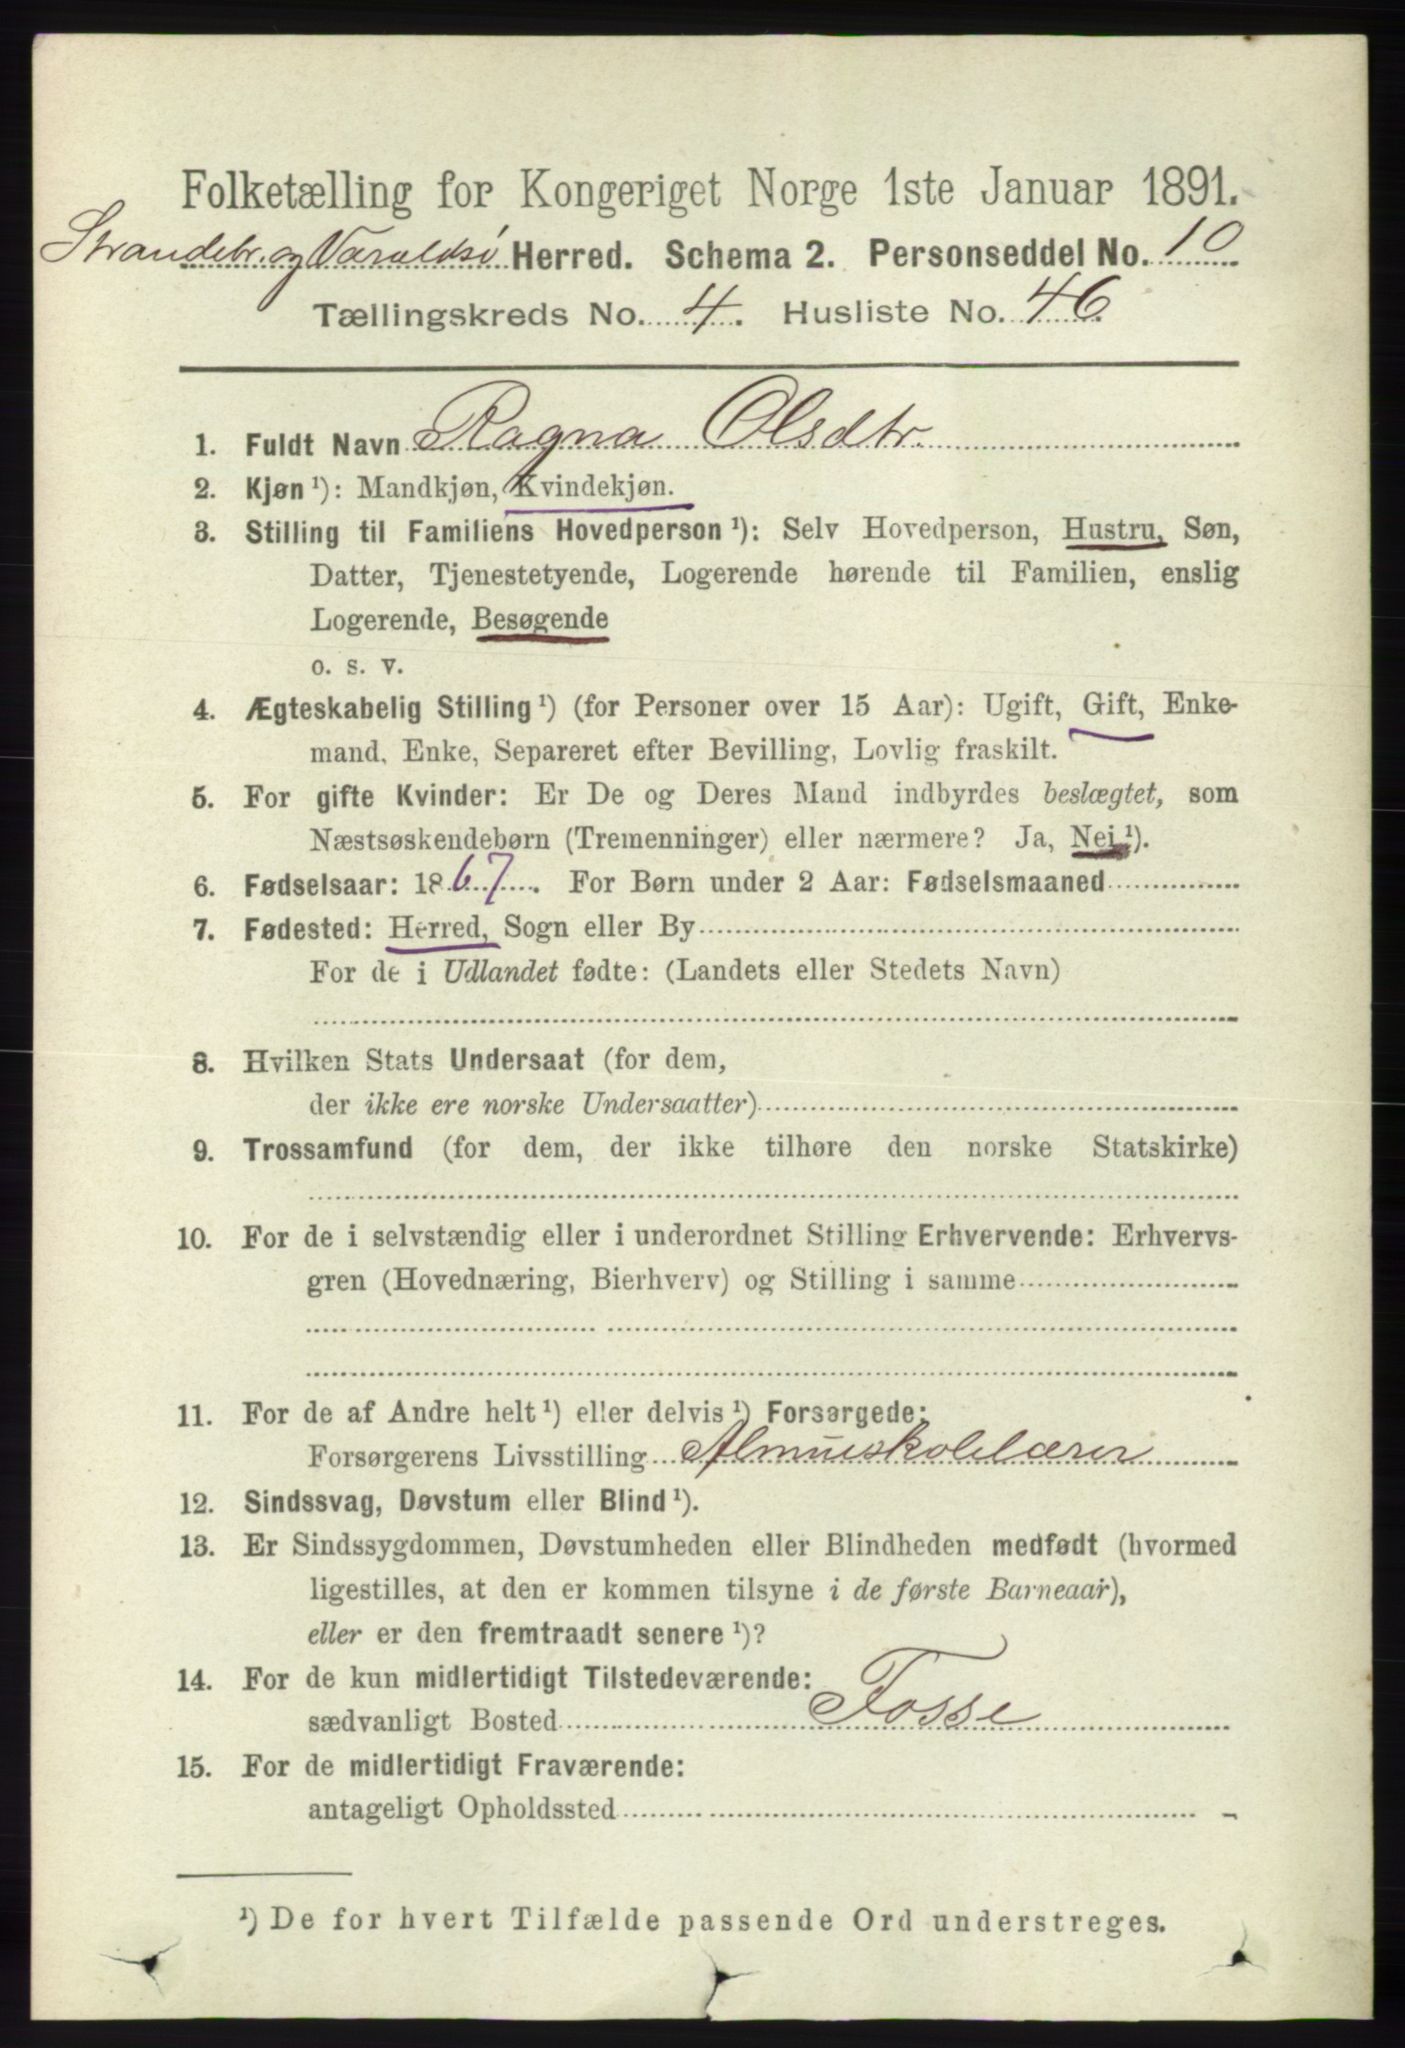 Folketælling for Kongeriget Norge 1ste Januar 1891.
Strandebr. og Varaldsø Herred. Schema 2. Personseddel No. 10
Tællingskreds No. 4. Husliste No. 46
1. Fuldt Navn Ragna Olsdtr.
2. Kjøn ¹): Mandkjøn, Kvindekjøn.
3. Stilling til Familiens Hovedperson ¹): Selv Hovedperson, Hustru, Søn,
Datter, Tjenestetyende, Logerende hørende til Familien, enslig
Logerende, Besøgende
o. s. v.
4. Ægteskabelig Stilling ¹) (for Personer over 15 Aar): Ugift, Gift, Enke-
mand, Enke, Separeret efter Bevilling, Lovlig fraskilt.
5. For gifte Kvinder: Er De og Deres Mand indbyrdes beslægtet, som
Næstsøskendebørn (Tremenninger) eller nærmere? Ja, Nei ¹).
6. Fødselsaar: 1867. For Børn under 2 Aar: Fødselsmaaned
7. Fødested: Herred, Sogn eller By
For de i Udlandet fødte: (Landets eller Stedets Navn)
8. Hvilken Stats Undersaat (for dem,
der ikke ere norske Undersaatter)
9. Trossamfund (for dem, der ikke tilhøre den norske Statskirke)
10. For de i selvstændig eller i underordnet Stilling Erhvervende: Erhvervs-
gren (Hovednæring, Bierhverv) og Stilling i samme
11. For de af Andre helt ¹) eller delvis ¹) Forsørgede:
Forsørgerens Livsstilling Almueskolelærer
12. Sindssvag, Døvstum eller Blind ¹).
13. Er Sindssygdommen, Døvstumheden eller Blindheden medfødt (hvormed
ligestilles, at den er kommen tilsyne i de første Barneaar),
eller er den fremtraadt senere ¹)?
14. For de kun midlertidigt Tilstedeværende:
sædvanligt Bosted Fosse
15. For de midlertidigt Fraværende:
antageligt Opholdssted
¹) De for hvert Tilfælde passende Ord understreges.